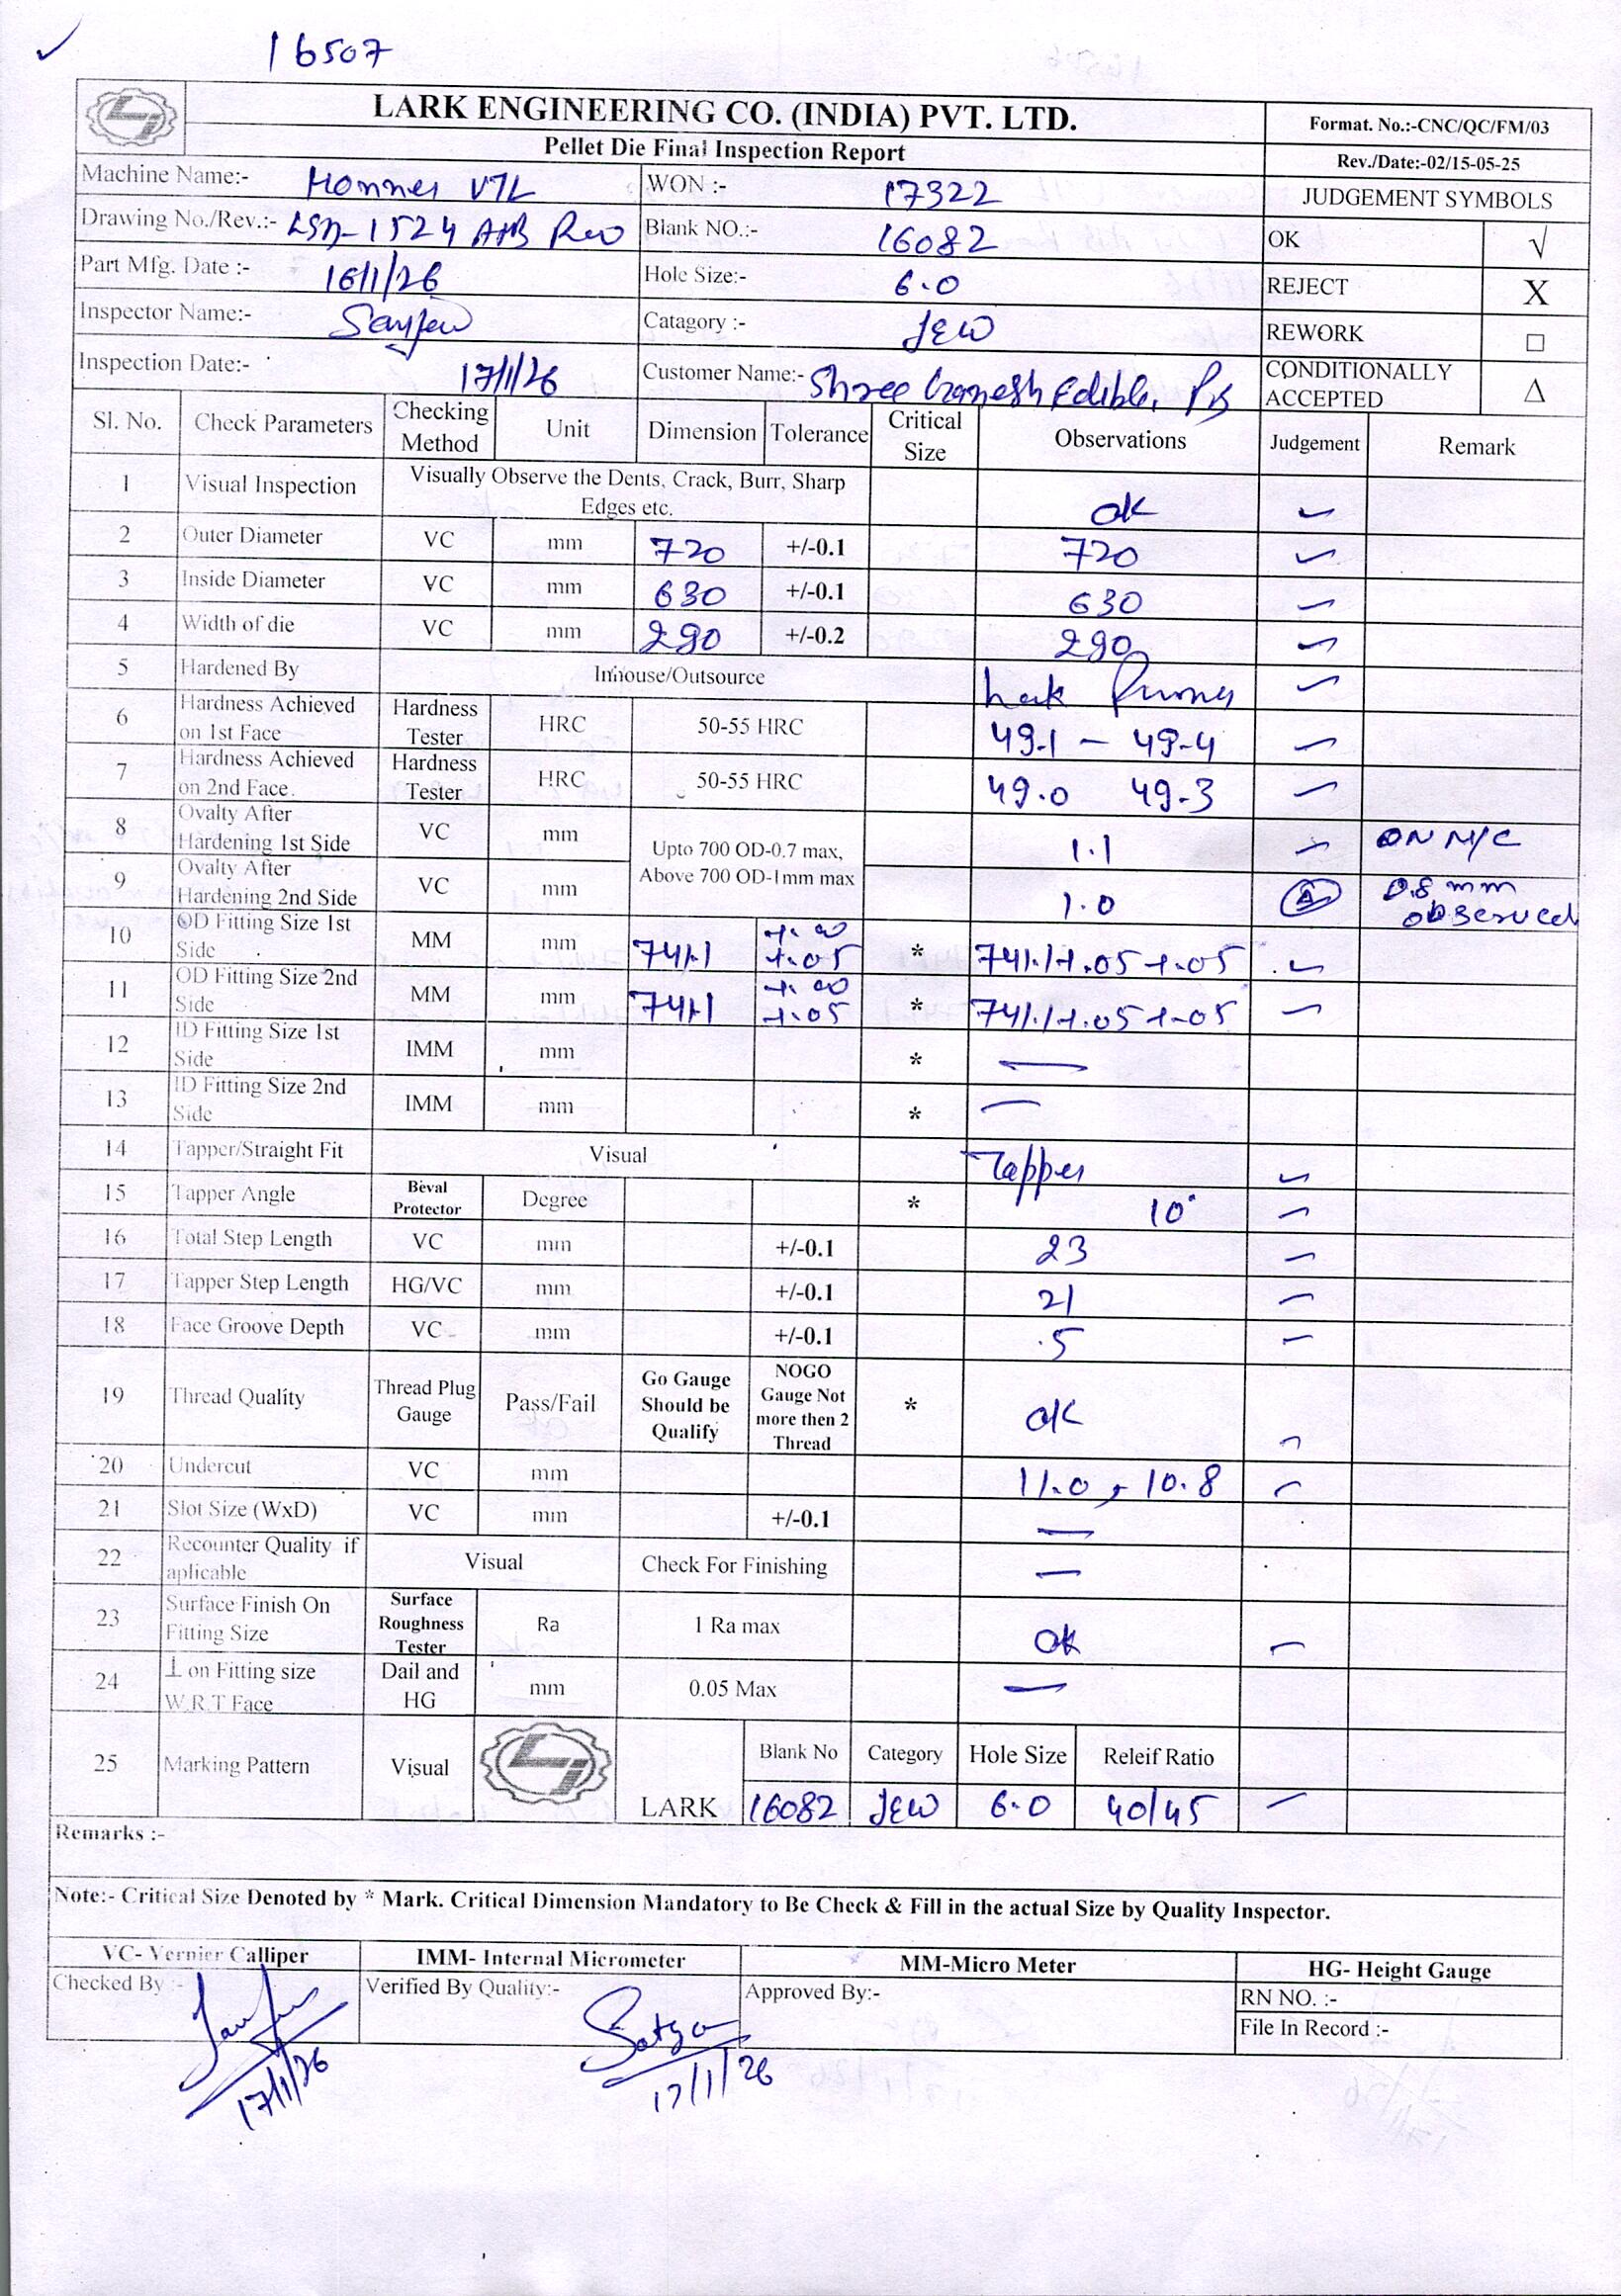 16507
LARK ENGINEERING CO. (INDIA) PVT. LTD.
Pellet Die Final Inspection Report
Format. No.:-CNC/QC/FM/03
Rev./Date:-02/15-05-25
Machine Name:- VTL WON :- 17322 JUDGEMENT SYMBOLS
Drawing No./Rev.:- 1524 Blank NO.:- 16082 OK √
Part Mfg. Date :- 16/1/26 Hole Size:- 6.0 REJECT X
Inspector Name:- Catagory :- JEW REWORK □
Inspection Date:- 17/1/26 Customer Name:- Shree Ganesh Edible, PB CONDITIONALLY ACCEPTED Δ
Sl. No. Check Parameters Checking Method Unit Dimension Tolerance Critical Size Observations Judgement Remark
1 Visual Inspection Visually Observe the Dents, Crack, Burr, Sharp Edges etc. ok ✓
2 Outer Diameter VC mm 720 +/-0.1 720 ✓
3 Inside Diameter VC mm 630 +/-0.1 630 ✓
4 Width of die VC mm 290 +/-0.2 290 ✓
5 Hardened By Inhouse/Outsource ✓
6 Hardness Achieved on 1st Face Hardness Tester HRC 50-55 HRC 49.1 – 49.4 ✓
7 Hardness Achieved on 2nd Face. Hardness Tester HRC 50-55 HRC 49.0 49.3 ✓
8 Ovalty After Hardening 1st Side VC mm Upto 700 OD-0.7 max, Above 700 OD-1mm max 1.1 ✓ ON M/C
9 Ovalty After Hardening 2nd Side VC mm 1.0 0.8 mm observed
10 OD Fitting Size 1st Side MM mm 741.1 +.00 +.05 * 741.1+.05+.05 ✓
11 OD Fitting Size 2nd Side MM mm 741.1 +.00 +.05 * 741.1+.05+.05 ✓
12 ID Fitting Size 1st Side IMM mm * —
13 ID Fitting Size 2nd Side IMM mm * —
14 Tapper/Straight Fit Visual Tapper ✓
15 Tapper Angle Beval Protector Degree * 10° ✓
16 Total Step Length VC mm +/-0.1 23 ✓
17 Tapper Step Length HG/VC mm +/-0.1 21 ✓
18 Face Groove Depth VC mm +/-0.1 .5 ✓
19 Thread Quality Thread Plug Gauge Pass/Fail Go Gauge Should be Qualify NOGO Gauge Not more then 2 Thread * ok ✓
20 Undercut VC mm 11.0, 10.8 ✓
21 Slot Size (WxD) VC mm +/-0.1 —
22 Recounter Quality if aplicable Visual Check For Finishing —
23 Surface Finish On Fitting Size Surface Roughness Tester Ra 1 Ra max ok ✓
24 ⊥ on Fitting size W.R.T Face Dail and HG mm 0.05 Max —
25 Marking Pattern Visual LARK Blank No Category Hole Size Releif Ratio
16082 JEW 6.0 40/45 ✓
Remarks :-
Note:- Critical Size Denoted by * Mark. Critical Dimension Mandatory to Be Check & Fill in the actual Size by Quality Inspector.
VC- Vernier Calliper IMM- Internal Micrometer MM-Micro Meter HG- Height Gauge
Checked By :- Verified By Quality:- Satya Approved By:- RN NO. :-
File In Record :-
17/1/26 17/1/26